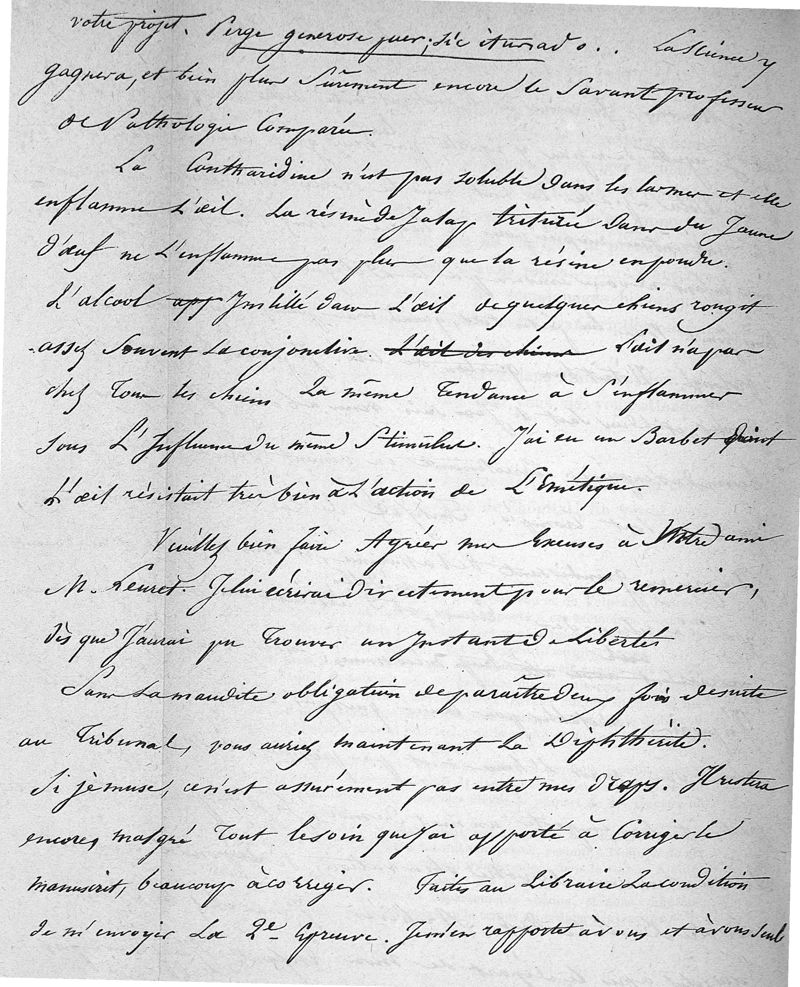 votre projet. Perge generose puer; sic itur ad s... La Science y
gagnera, et bien plus Sûrement encore le Savant professeur
de Pathologie Comparée.
La Contharidine n'est pas soluble dans les larmes et elle
enflamme L'œil. La résine de Jalap triturée Dans du Jaune
d'œuf ne L'enflamme pas plus que la résine en poudre.
L'alcool Instillé dans L'œil de quelques chiens rougit
assez Souvent La conjonctive. L'œil des chiens L'œil n'a pas
chez Tous les chiens La même Tendance à S'enflammer
sous L'Influence du même Stimulus. J'ai eu un Barbet dont
L'œil résistait très bien à L'action de L'Emétique.
Veuillez bien faire Agréer mes Excuses à Votre ami
M. Leuret. Je lui écrirai directement pour le remercier,
dès que J'aurai pu Trouver un Instant de Libertés
Sans La maudite obligation de paraître deux fois de suite
au Tribunal, vous auriez maintenant La Diphthérite.
Si je muse, ce n'est assurément pas entre mes draps. Il restera
encore, malgré Tout le soin que J'ai apporté à Corriger le
manuscrit, beaucoup à corriger. Faites au Libraire La condition
de m'envoyer La 2e Epreuve. Je m'en rapporte à vous et à vous seul